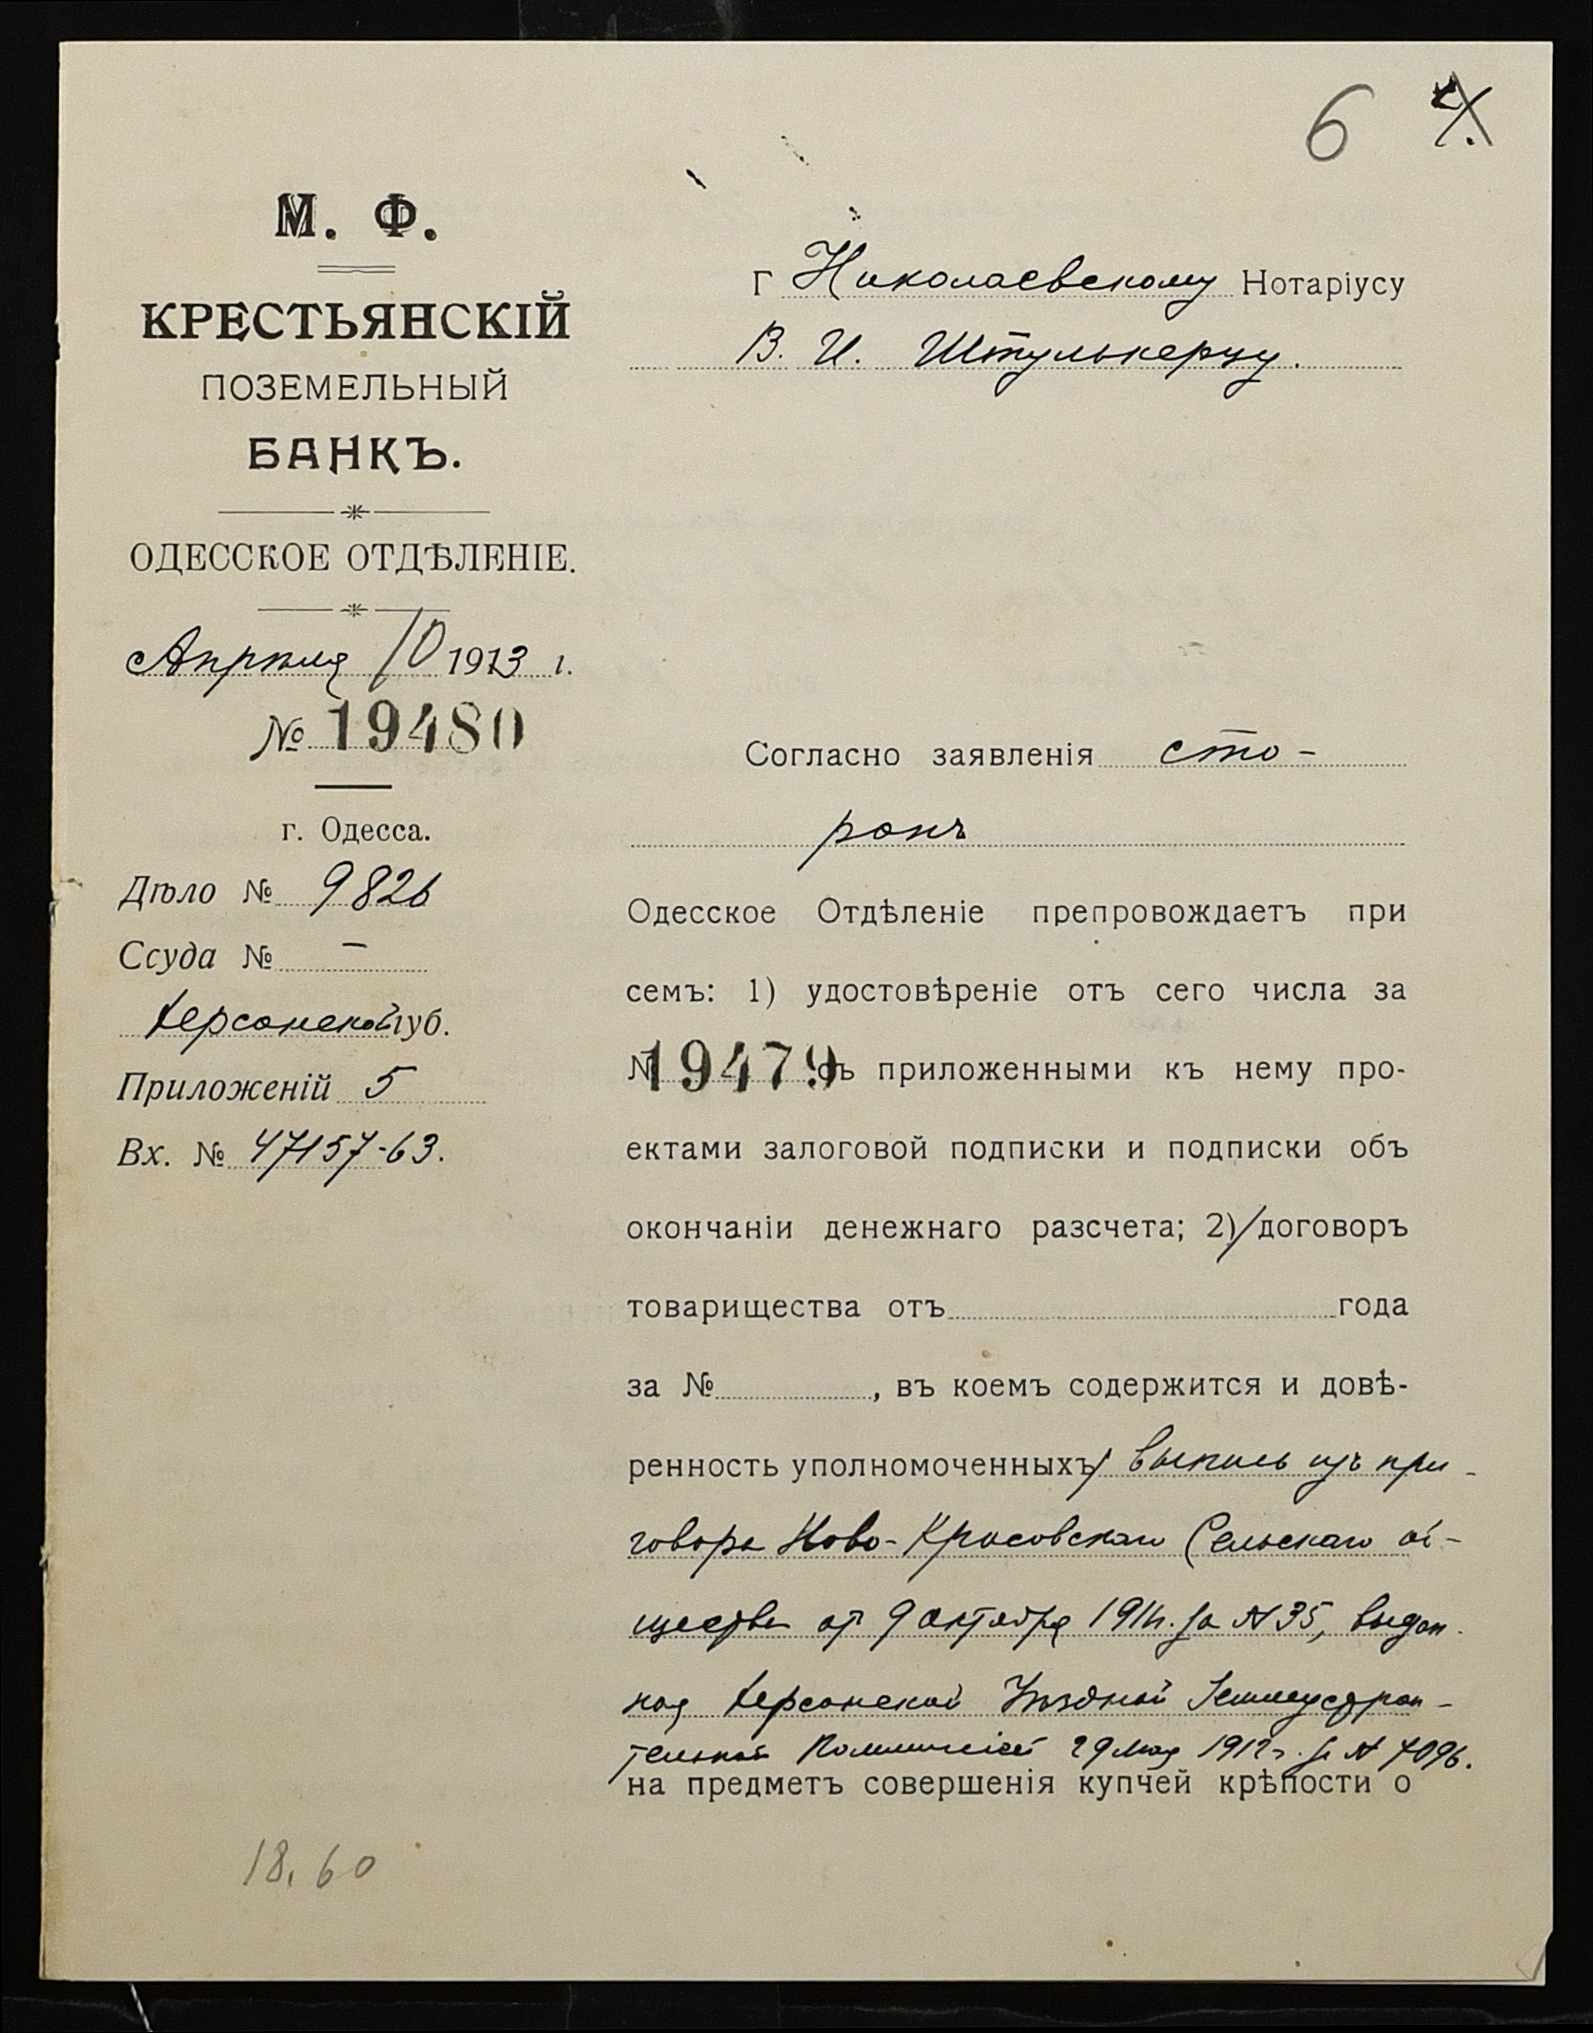 6
М. Ф.
КРЕСТЬЯНСКІЙ
ПОЗЕМЕЛЬНЫЙ
БАНКЪ.
ОДЕССКОЕ ОТДѢЛЕНІЕ.
Апрѣля 10 1913 г.
№ 19480
г. Одесса.
Дѣло № 9826
Ссуда № –
Херсонской губ.
Приложеній 5
Вх. № 47157-63.
18.60
Г Николаевскому Нотаріусу
В. И. Штулькерцу.
Согласно заявленія сто-
ронъ
Одесское Отдѣленіе препровождаетъ при
семъ: 1) удостовѣреніе отъ сего числа за
№ 19479 съ приложенными къ нему про-
ектами залоговой подписки и подписки объ
окончаніи денежнаго разсчета; 2)/договоръ
товарищества отъ года
за № , въ коемъ содержится и довѣ-
ренность уполномоченныхъ/ выпись изъ при-
говора Ново-Красовскаго Сельскаго об-
щества от 9 октября 191 г. за № 35, выдан-
ная Херсонской Уѣздной Землеустрои-
тельной Коммиссіей 29 мая 1912 г. за № 7096.
на предметъ совершенія купчей крѣпости о